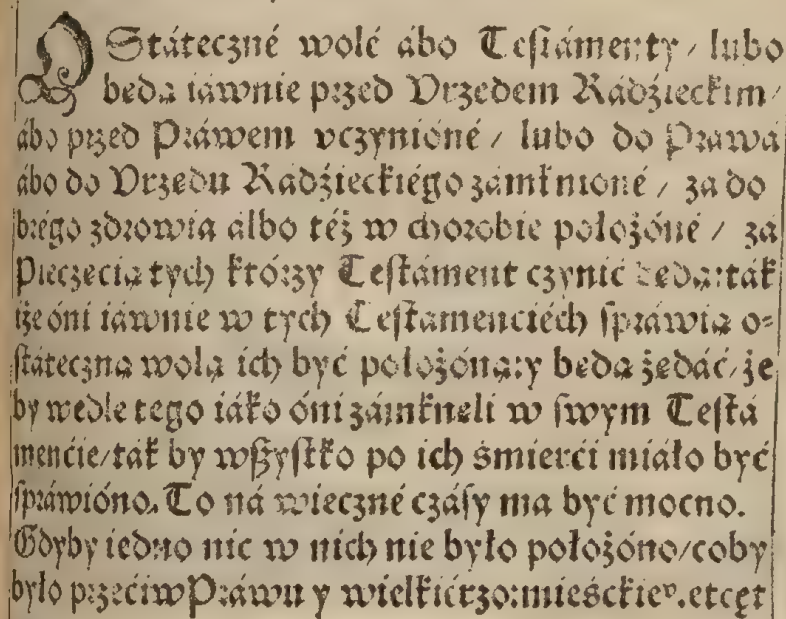 OStáteczné wolé ábo Testámenty / lubo
beda iáwnie przed Vrzedem Radźieckim /
ábo przed Práwem vczynióné / lubo do Práwá
ábo do Vrzedu Radźieckiégo zámknioné / zá do
brégo zdrowia álbo téż w chorobie położóné / zá
Pieczecią tych którzy Testáment czynić beda: ták
iże óni iáwnie w tych Testamenciéch spráwią o=
státeczną wolą ich być położóną: y beda żedáć / że
by wedle tego iáko óni zámkneli w swym Testá
menćie / ták by wszystko po ich śmierći miáło być
spráwióno. To ná wieczné czásy ma być mocno.
Gdyby iedno nic w nich nie było położóno / coby
było przećiw Práwu y mieśćkie etcęt